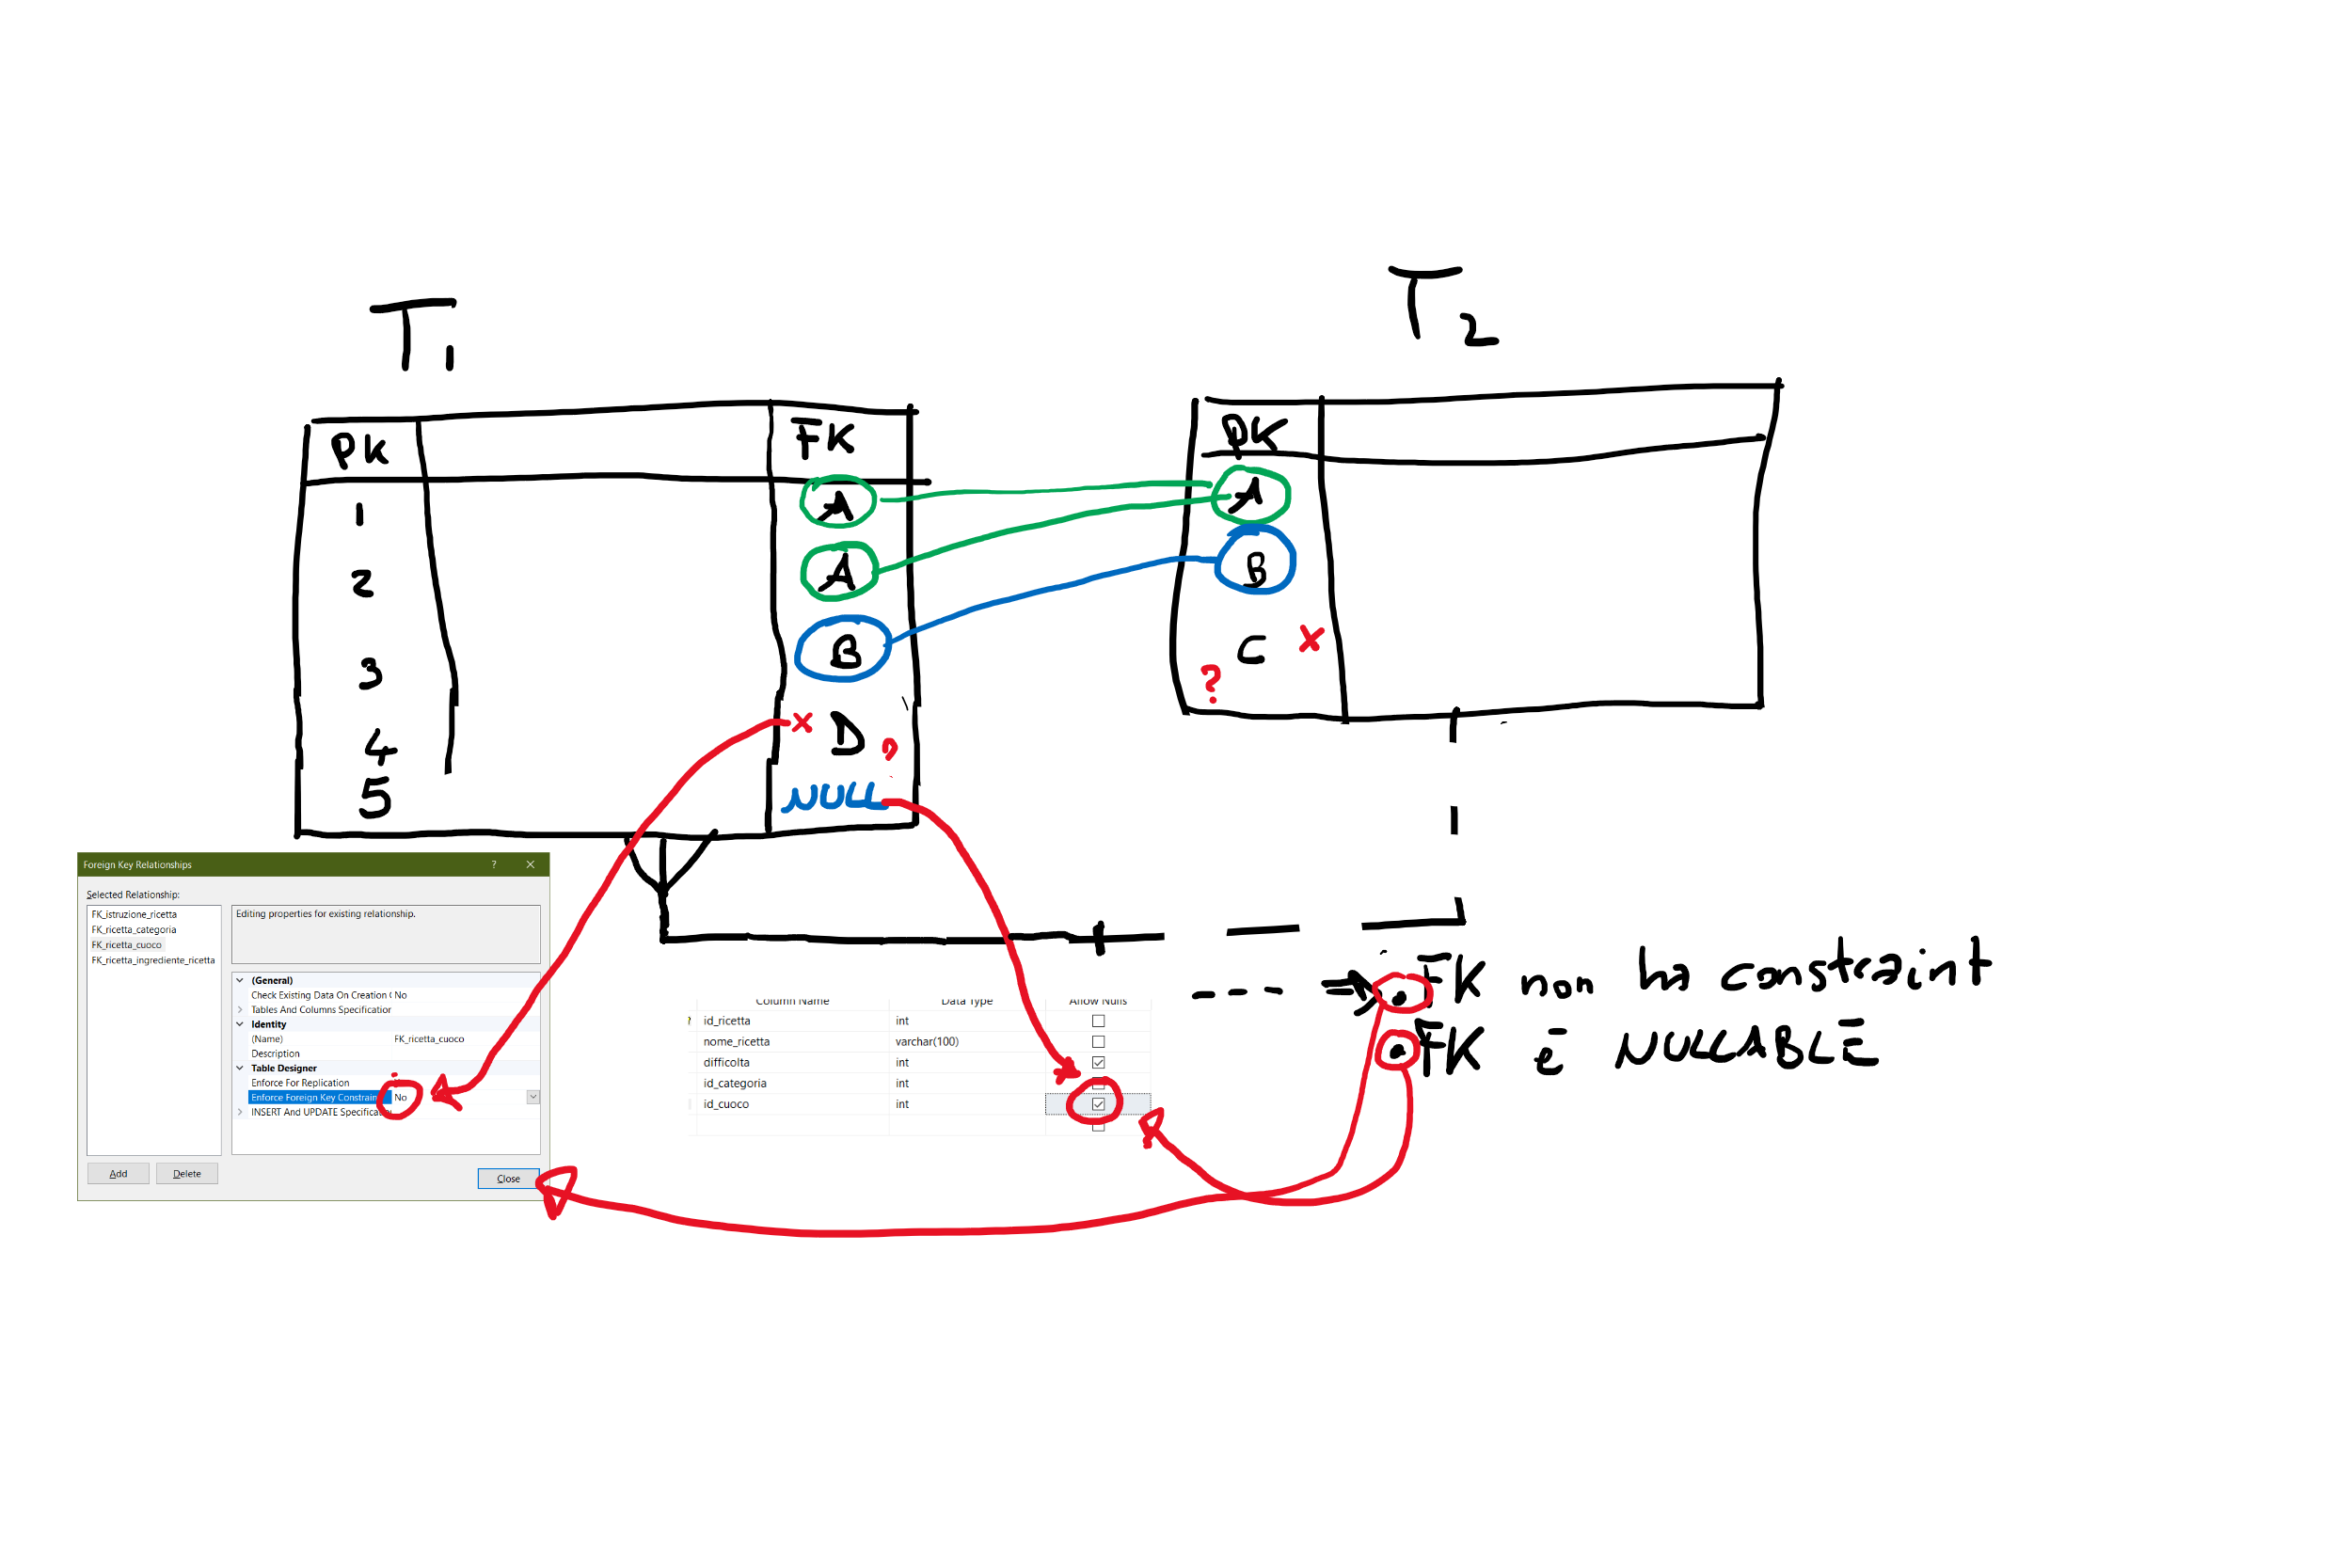 T1
T2
PK FK
1 A
2 A
3 B
4 D
5 NULL
PK
A
B
C
?
Foreign Key Relationships ?
Selected Relationship:
FK_istruzione_ricetta
FK_ricetta_categoria
FK_ricetta_cuoco
FK_ricetta_ingrediente_ricetta
Editing properties for existing relationship.
(General)
Check Existing Data On Creation ( No
Tables And Columns Specification
Identity
(Name) FK_ricetta_cuoco
Description
Table Designer
Enforce For Replication
Enforce Foreign Key Constrain No
INSERT And UPDATE Specificat
Add Delete
Close
Column Name Data Type Allow Nulls
id_ricetta int
nome_ricetta varchar(100)
difficolta int
id_categoria int
id_cuoco int
FK non ha constraint
FK è NULLABLE